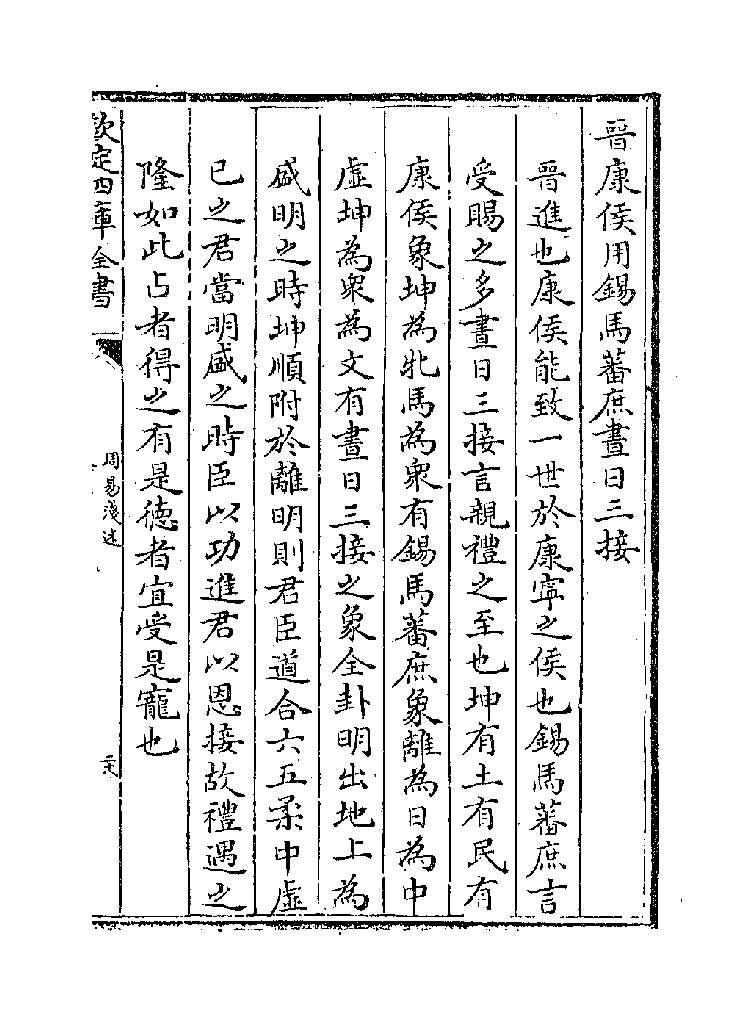 晉康侯用錫馬蕃庶晝日三接
晉進也康侯能致一世於康寧之侯也錫馬蕃庶言
受賜之多晝日三接言親禮之至也坤有土有民有
康侯象坤為牝馬為衆有錫馬蕃庶象離為日為中
虛坤為衆為文有晝日三接之象全卦明出地上為
盛明之時坤順附於離明則君臣道合六五柔中虛
已之君當明盛之時臣以功進君以恩接故禮遇之
隆如此占者得之有是德者宜受是寵也
欽定四庫全書
周易淺述